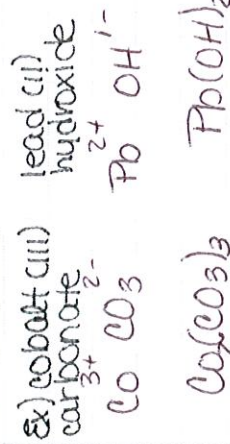 Ex) cobalt (iii)
carbonate
3+ 2-
Co CO₃
Co₂(CO₃)₃
lead (ii)
hydroxide
2+ 1-
Pb OH
Pb(OH)₂